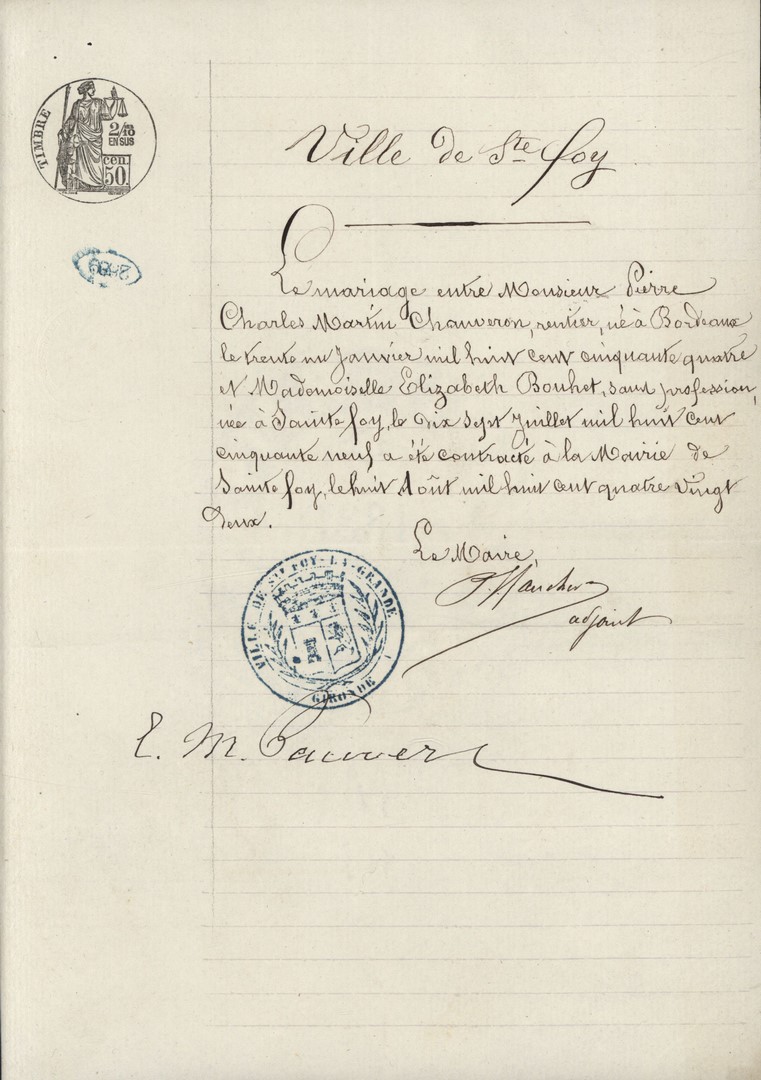 TIMBRE
2/10
EN SUS
cen.
50.
Ville de Ste foy
Le mariage entre Monsieur Pierre
Charles Martin Chauveron, rentier, né à Bordeaux
le trente un Janvier mil huit cent cinquante quatre
et Mademoiselle Elizabeth Bouhet, sans profession,
née à Sainte foy, le dix sept Juillet mil huit cent
cinquante neuf a été contracté à la Mairie de
Sainte foy, le huit Août mil huit cent quatre vingt
deux.
Le Maire,
adjoint
VILLE DE Ste FOY-LA-GRANDE
GIRONDE
E. M.